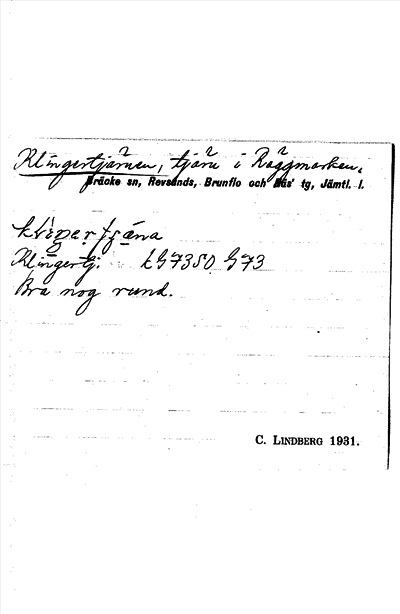 Klingertjärnen, tjärn i Räggmarken,
Bräcke sn, Revsunds, Brunflo och Näs' tg, Jämtl. l.
Klingertj. LG7350 G73
Bra nog rund.
C. LINDBERG 1931.